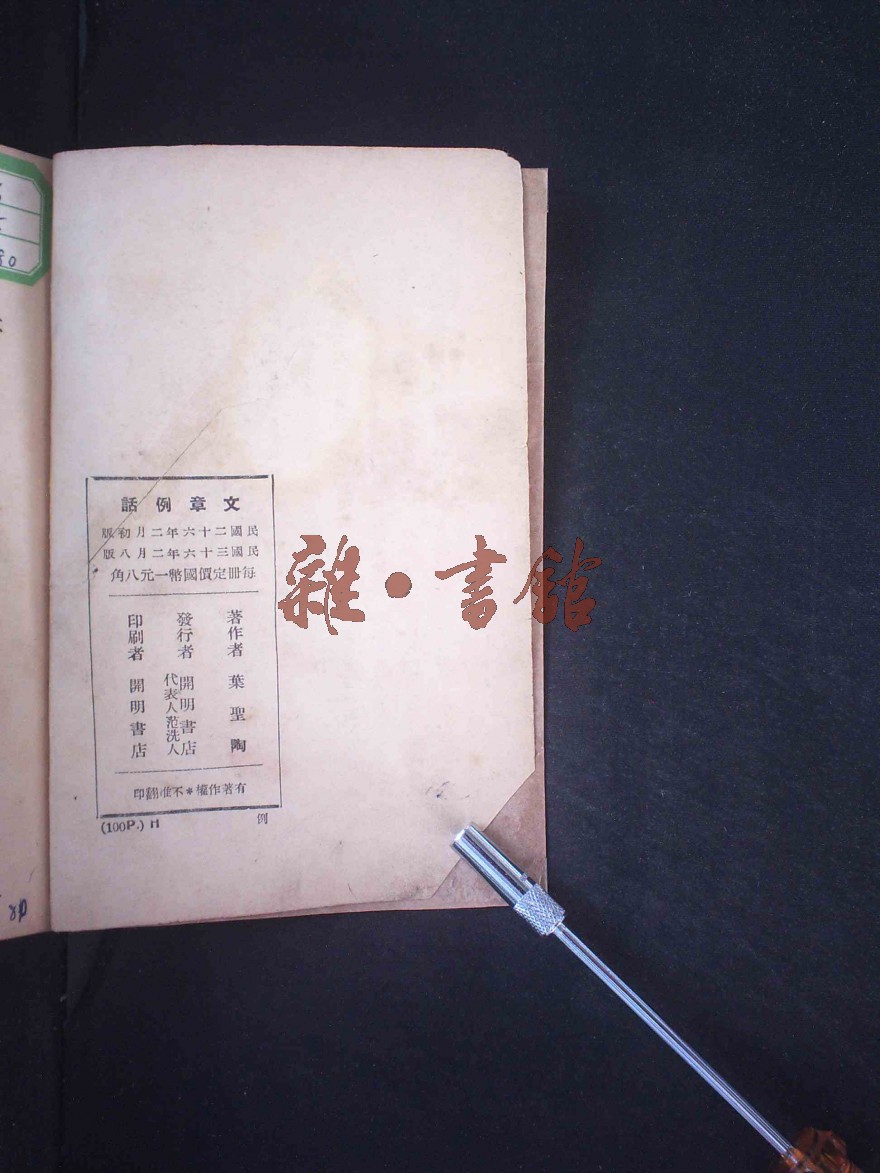 文章例話
民國二十六年二月初版
民國三十六年二月八版
每冊定價國幣一元八角
著作者 葉聖陶
發行者 開明書店
代表人范洗人
印刷者 開明書店
有著作權＊不准翻印
(100P.) H
例
雜·書館
80